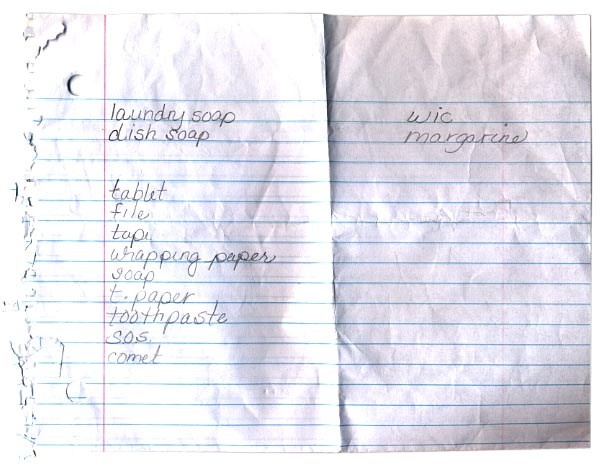 laundry soap
dish soap
tablet
file
tape
wrapping paper
soap
t. paper
toothpaste
s.o.s.
comet
wic
margarine